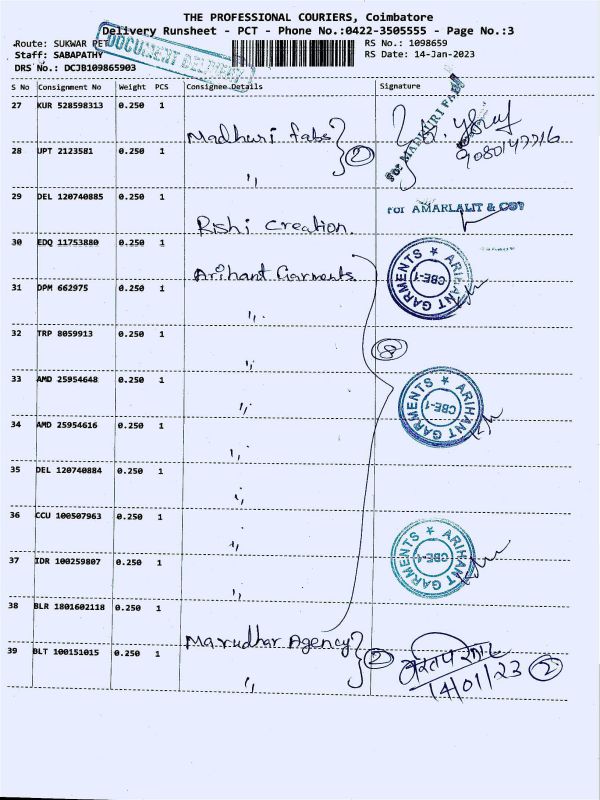 THE PROFESSIONAL COURIERS, Coimbatore
Delivery Runsheet - PCT - Phone No.:0422-3505555 - Page No.:3
Route: SUKWAR PET
RS No.: 1098659
Staff: SABAPATHY
RS Date: 14-Jan-2023
DRS No.: DCJB109865903
DOCUMENT DELIVERY
S No Consignment No Weight PCS Consignee Details Signature
27 KUR 528598313 0.250 1 Madhuri fabs 2
For MADHURI FAB
28 UPT 2123581 0.250 1 "
29 DEL 120740885 0.250 1 Rishi Creation.
For AMARLALIT & CO
30 EDQ 11753880 0.250 1 Arihant Garments
ARIHANT GARMENTS ★ CBE-1
31 DPM 662975 0.250 1 "
32 TRP 8059913 0.250 1 "
8
33 AMD 25954648 0.250 1 "
ARIHANT GARMENTS ★ CBE-1
34 AMD 25954616 0.250 1 "
35 DEL 120740884 0.250 1 "
36 CCU 100507963 0.250 1 "
ARIHANT GARMENTS ★ CBE-1
37 IDR 100259807 0.250 1 "
38 BLR 1801602118 0.250 1 Marudhar Agency 2
39 BLT 100151015 0.250 1 "
14/01/23 2